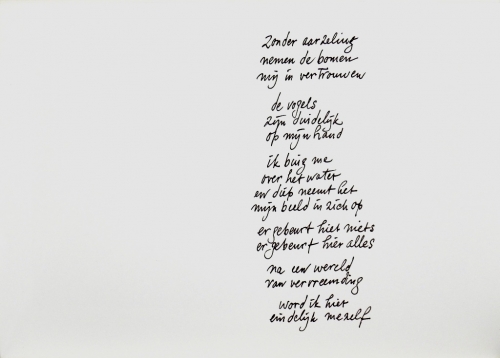 Zonder aarzeling
nemen de bomen
mij in vertrouwen
de vogels
zijn duidelijk
op mijn hand
ik buig me
over het water
en diep neemt het
mijn beeld in zich op
er gebeurt hier niets
er gebeurt hier alles
na een wereld
van vervreemding
word ik hier
eindelijk mezelf